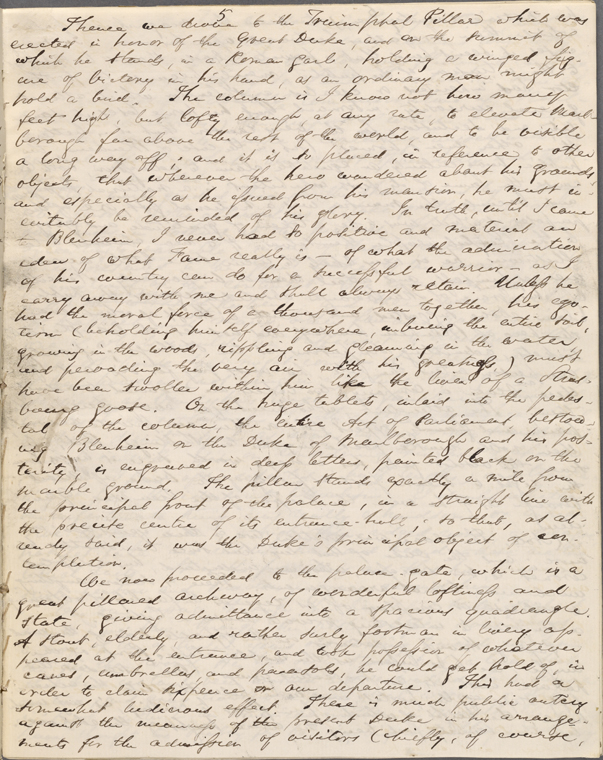 5
Thence we drove to the Triumphal Pillar which was
erected in honor of the Great Duke, and on the summit of
which he stands, in a Roman garb, holding a winged fig-
ure of Victory in his hand, as an ordinary man might
hold a bird. The column is I know not how many
feet high, but lofty enough at any rate, to elevate Marl-
borough far above the rest of the world, and to be visible
a long way off; and it is so placed, in reference to other
objects, that wherever the hero wandered about his grounds,
and especially as he issued from his mansion, he must in-
evitably be reminded of his glory. In truth, until I came
to Blenheim, I never had so positive and material an
idea of what Fame really is—of what the admiration
of his country can do for a successful warrior—as I
carry away with me and shall always retain. Unless he
had the moral force of a thousand men together, his ego-
tism (beholding himself everywhere, imbuing the entire soil,
growing in the woods, rippling and gleaming in the water
and pervading the very air with his greatness) must
have been swollen within him like the liver of a Stras-
bourg goose. On the huge tablets, inlaid into the pedes-
tal of the column, the entire Act of Parliament, bestow-
ing Blenheim on the Duke of Marlborough and his pos-
terity, is engraved in deep letters, painted black on the
marble ground. The pillar stands exactly a mile from
the principal front of the palace, in a straight line with
the precise centre of its entrance-hall; so that, as al-
ready said, it was the Duke's principal object of con-
templation.
We now proceeded to the palace-gate, which is a
great pillared archway, of wonderful loftiness and
state, giving admittance into a spacious quadrangle.
A stout, elderly, and rather surly footman in livery ap-
peared at the entrance, and took possession of whatever
canes, umbrellas, and parasols, he could get hold of, in
order to claim sixpence on our departure. This had a
somewhat ludicrous effect. There is much public outcry
against the meanness of the present Duke in his arrange-
ments for the admission of visitors (chiefly, of course,